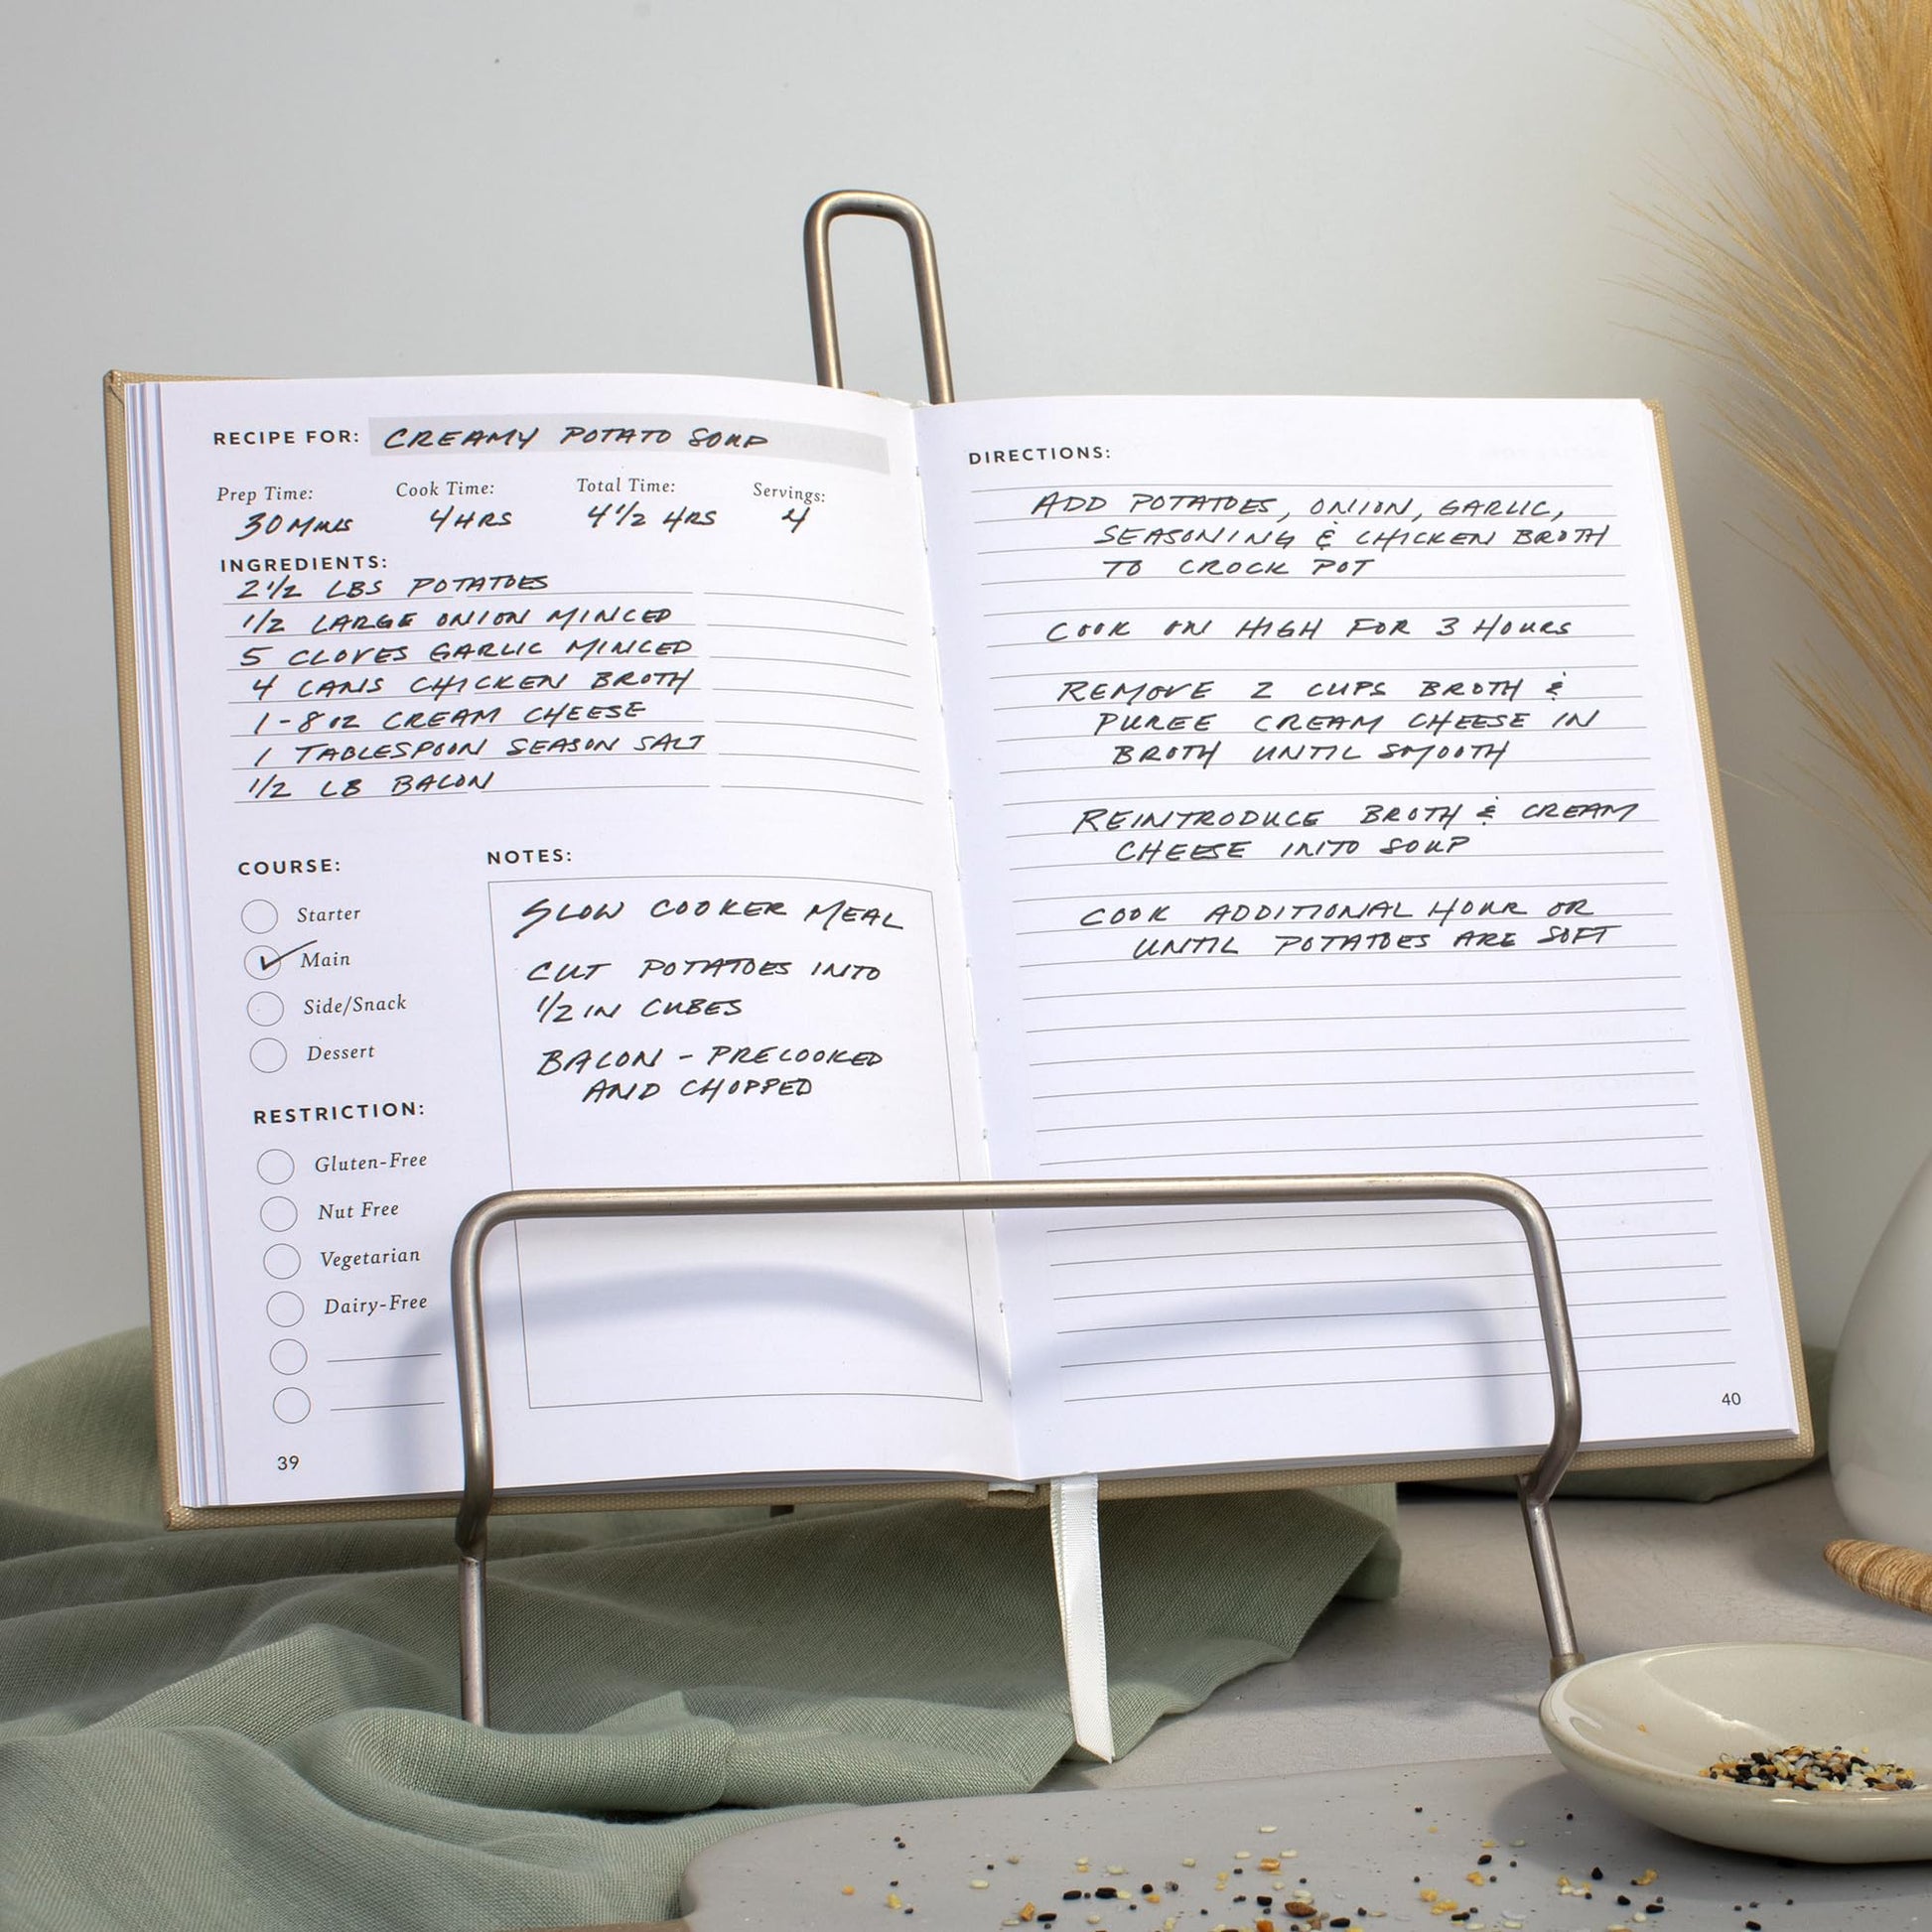 RECIPE FOR: CREAMY POTATO SOUP
Prep Time: Cook Time: Total Time: Servings:
30 MINS 4 HRS 4 1/2 HRS 4
INGREDIENTS:
2 1/2 LBS POTATOES
1/2 LARGE ONION MINCED
5 CLOVES GARLIC MINCED
4 CANS CHICKEN BROTH
1-8 OZ CREAM CHEESE
1 TABLESPOON SEASON SALT
1/2 LB BACON
COURSE:
Starter
Main
Side/Snack
Dessert
RESTRICTION:
Gluten-Free
Nut Free
Vegetarian
Dairy-Free
NOTES:
SLOW COOKER MEAL
CUT POTATOES INTO
1/2 IN CUBES
BACON - PRECOOKED
AND CHOPPED
39
DIRECTIONS:
ADD POTATOES, ONION, GARLIC,
SEASONING & CHICKEN BROTH
TO CROCK POT
COOK ON HIGH FOR 3 HOURS
REMOVE 2 CUPS BROTH &
PUREE CREAM CHEESE IN
BROTH UNTIL SMOOTH
REINTRODUCE BROTH & CREAM
CHEESE INTO SOUP
COOK ADDITIONAL HOUR OR
UNTIL POTATOES ARE SOFT
40